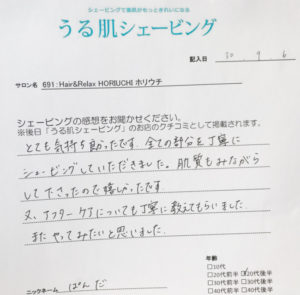 シェービングで素肌がもっときれいになる
うる肌シェービング
記入日 30 . 9 . 6
サロン名 691:Hair&Relax HORIUCHI ホリウチ
シェービングの感想をお聞かせください。
※後日「うる肌シェービング」のお店のクチコミとして掲載されます。
とても気持ち良かったです。全ての部分を丁寧に
シェービングしていただきました。肌質もみながら
して下さったので嬉しかったです。
又、アフターケアについても丁寧に教えてもらいました。
またやってみたいと思いました。
年齢
□10代
□20代前半 □20代後半
□30代前半 □30代後半
□40代前半 □40代後半
ニックネーム ぱんだ